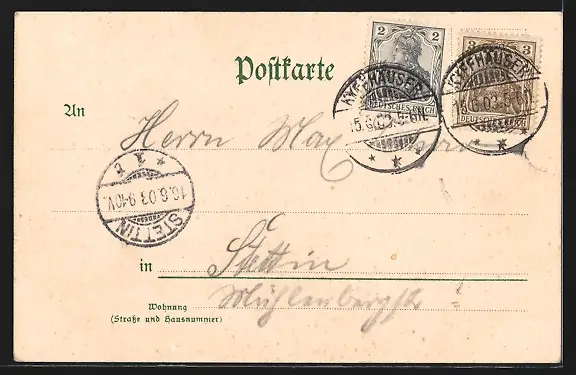 2 2
DEUTSCHES REICH
3 3
DEUTSCHES REICH
KYFFHÄUSER
15.6.03.
KYFFHÄUSER
15.6.03.
Postkarte
An
Herrn Max
STETTIN
16.6.03.9-10V.
* 1 t
in Stettin
Wohnung
(Straße und Hausnummer)
Mühlenbergstr.